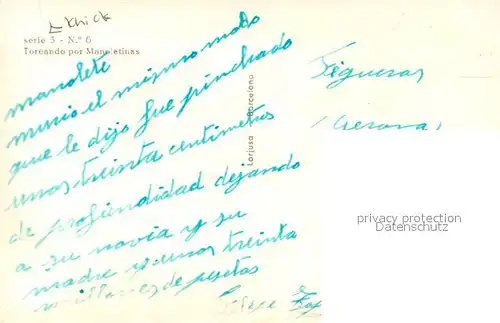 Khick
serie 3 - N.º 6
Toreando por Manoletinas
manolete
murio el mismo modo
que le dijo fue pinchado
unos treinta centimetros
de profiendidad dejando
a su novia y su
madre y unos treinta
millones de pesetas
Pepe
Lorjusa - Barcelona
Figueras
(Gerona)
privacy protection
Datenschutz